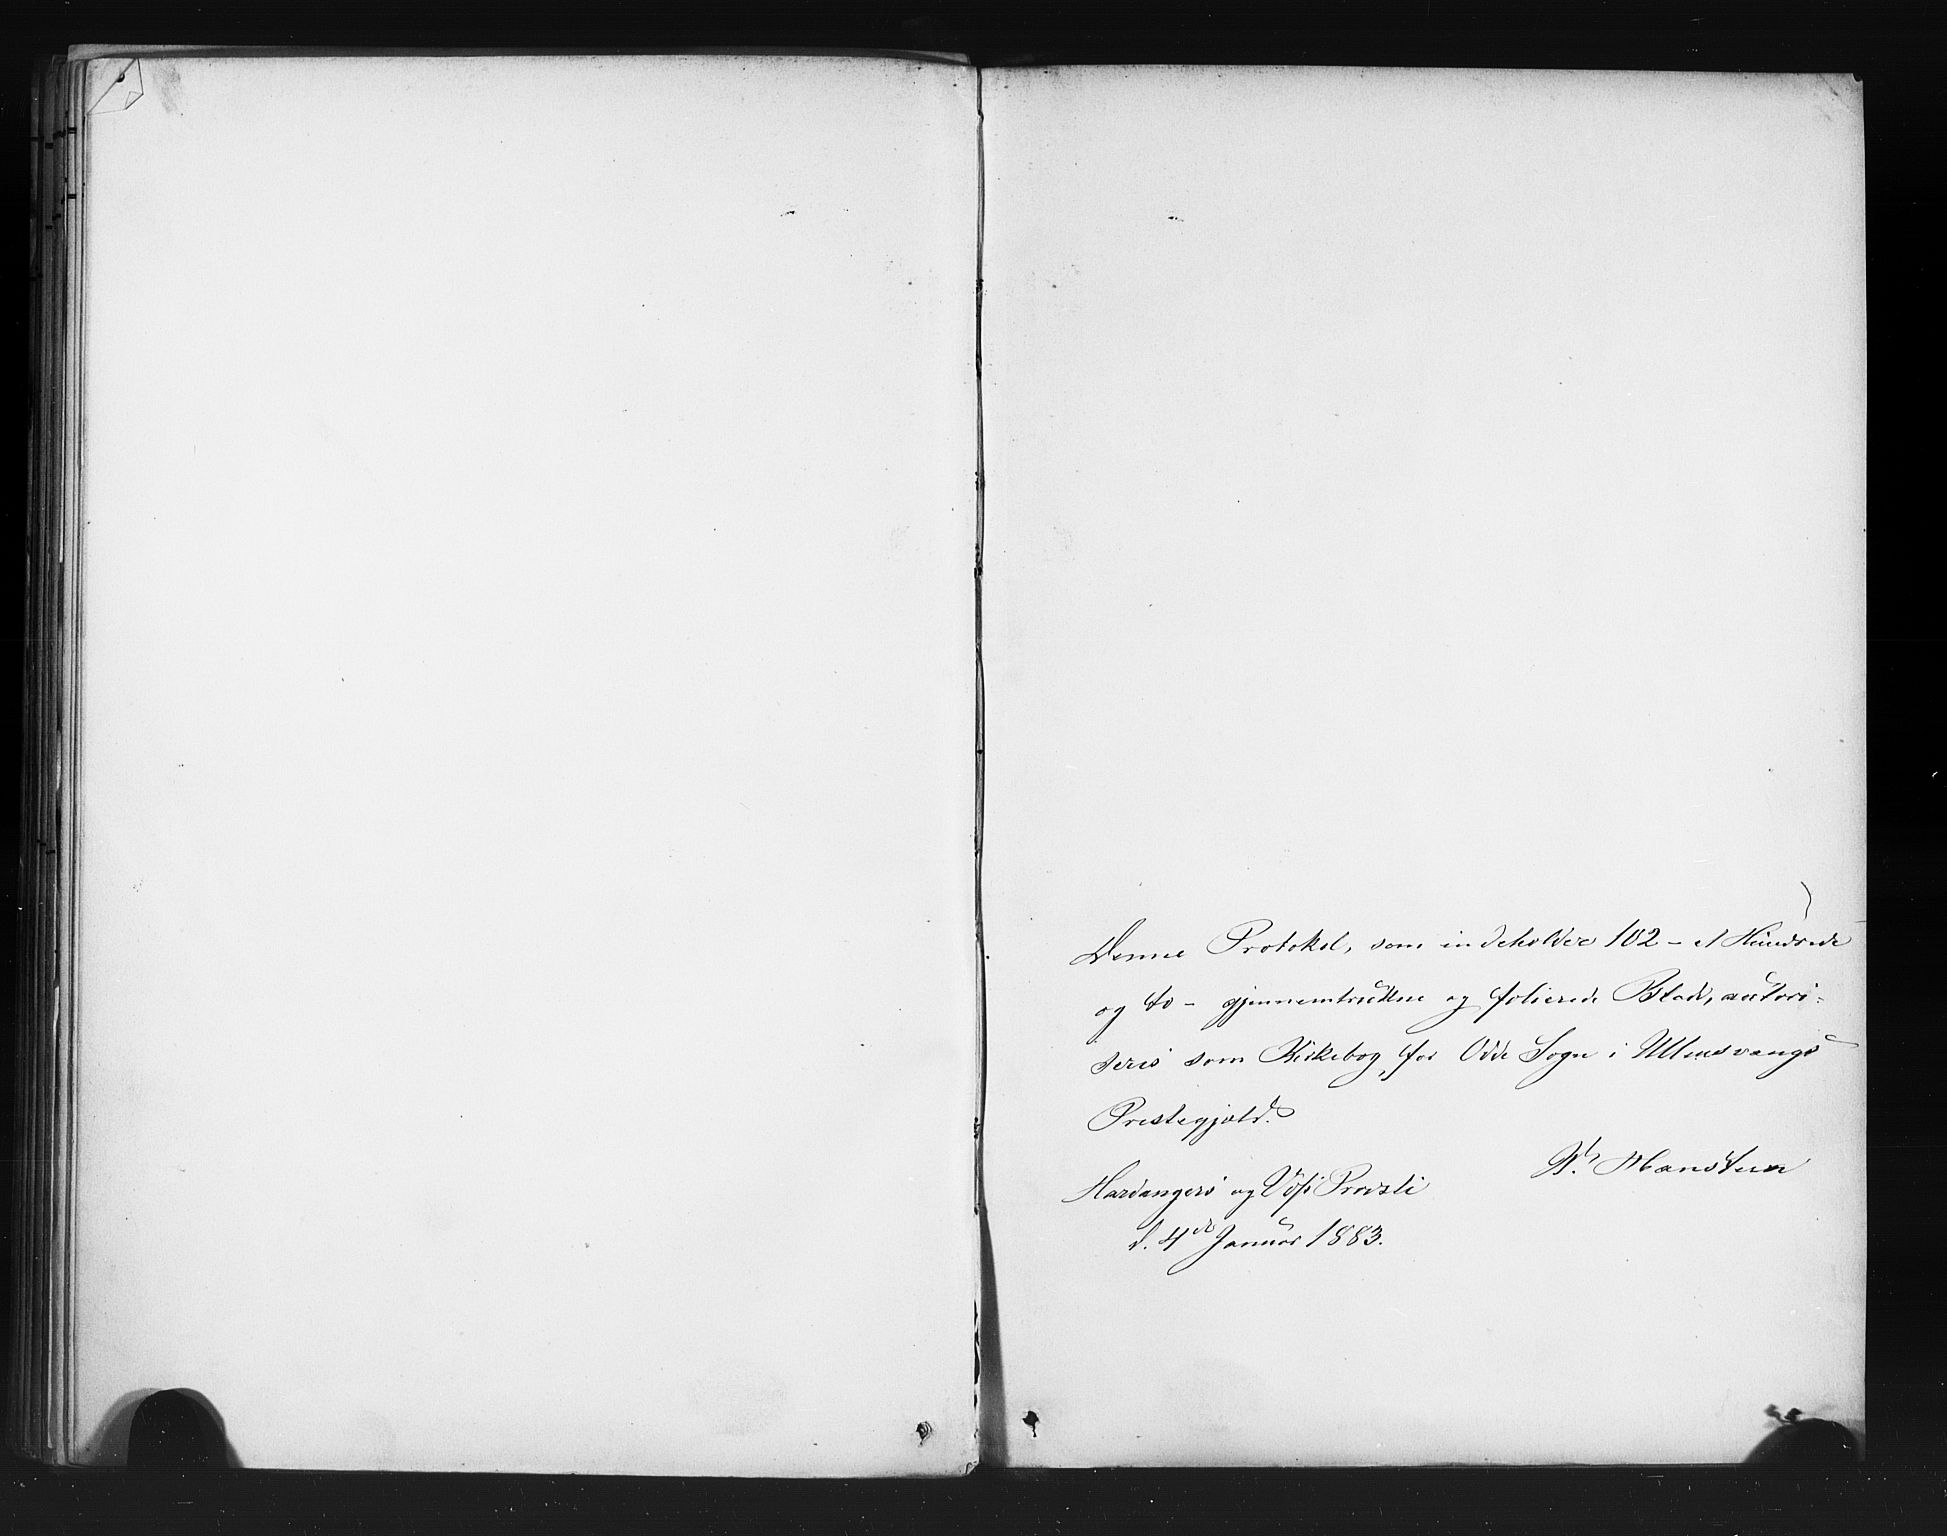 Denne Protokol, som indeholder 102 – et Hundrede
og to – gjennemtrukne og folierede Blade, autori-
seres som Kirkebog for Odde Sogn i Ullensvangs
Prestegjæld.
Hardangers og Vos's Provsti
d. 4de Januar 1883.